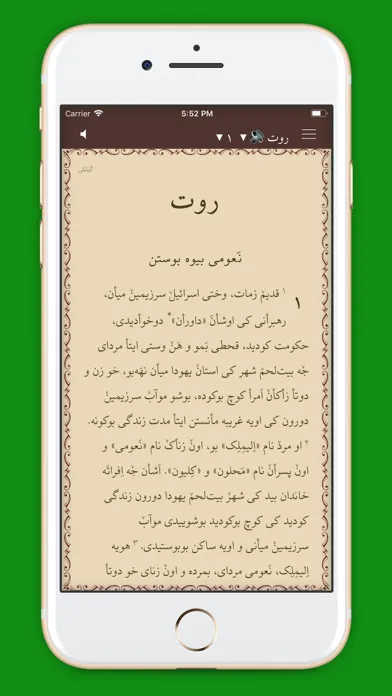 Carrier 5:52 PM
روت ▼ ۱ ▼
گیلکی
روت
نَعومی بیوه بوستن
۱ ۱ قدیمٚ زمات، وختی اسرائیلٚ سرزیمینٚ میأن،
رهبرأنی کی اوشأنَ «داورأن»* دوخوأدیدی،
حکومت کودید، قحطی بَمو و هَنٚ وستی ایتأ مردای
جٚه بیت‌لحمٚ شهر کی استانٚ یهودا میأن نهَه‌بو، خو زن و
دوتأ زأکأنَ اَمرأ کوچ بوکوده، بوشو موآبٚ سرزیمینٚ
دورون کی اویه غریبه مأنستن ایتأ مدت زندگی بوکونه.
۲ او مردَ نام «اِلیمِلِک» بو، اونٚ زنأکَ نام «نَعومی» و
اونٚ پسرأنَ نام «مَحلون» و «کِلیون». اَشأن جٚه اِفراتَه
خاندان بید کی شهرٚ بیت‌لحمٚ یهودا دورون زندگی
کودید کی کوچ بوکودید بوشوییدی موآبٚ
سرزیمینٚ میأنی و اویه ساکن بوبوستیدی. ۳ هویه
اِلیمِلِک، نَعومی مردای، بمرده و اونٚ زنای خو دوتأ